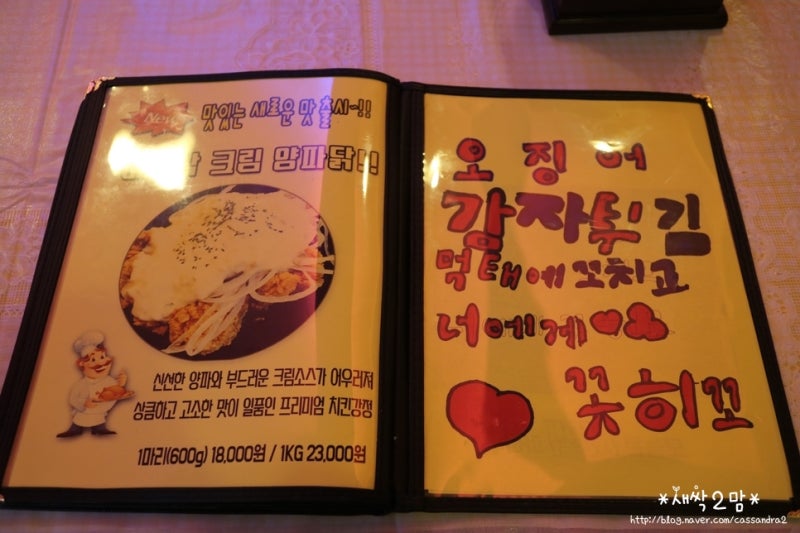 New
맛있는 새로운 맛 출시~!!
크림 양파닭!!
신선한 양파와 부드러운 크림소스가 어우러져
상큼하고 고소한 맛이 일품인 프리미엄 치킨강정
1마리(600g) 18,000원 / 1KG 23,000원
오징어
감자튀김
먹태에꼬치교
너에게
꽂히꼬
*새싹2맘*
http://blog.naver.com/cassandra2